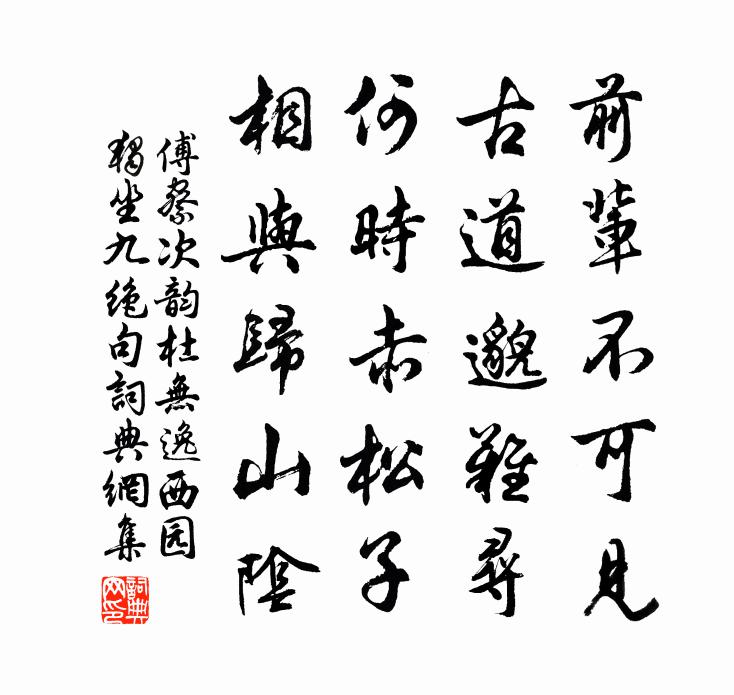 前輩不可見
古道邈難尋
何時赤松子
相與歸山陰
傅察次韵杜無逸西园
獨坐九绝句詞典網集
詞典
网印